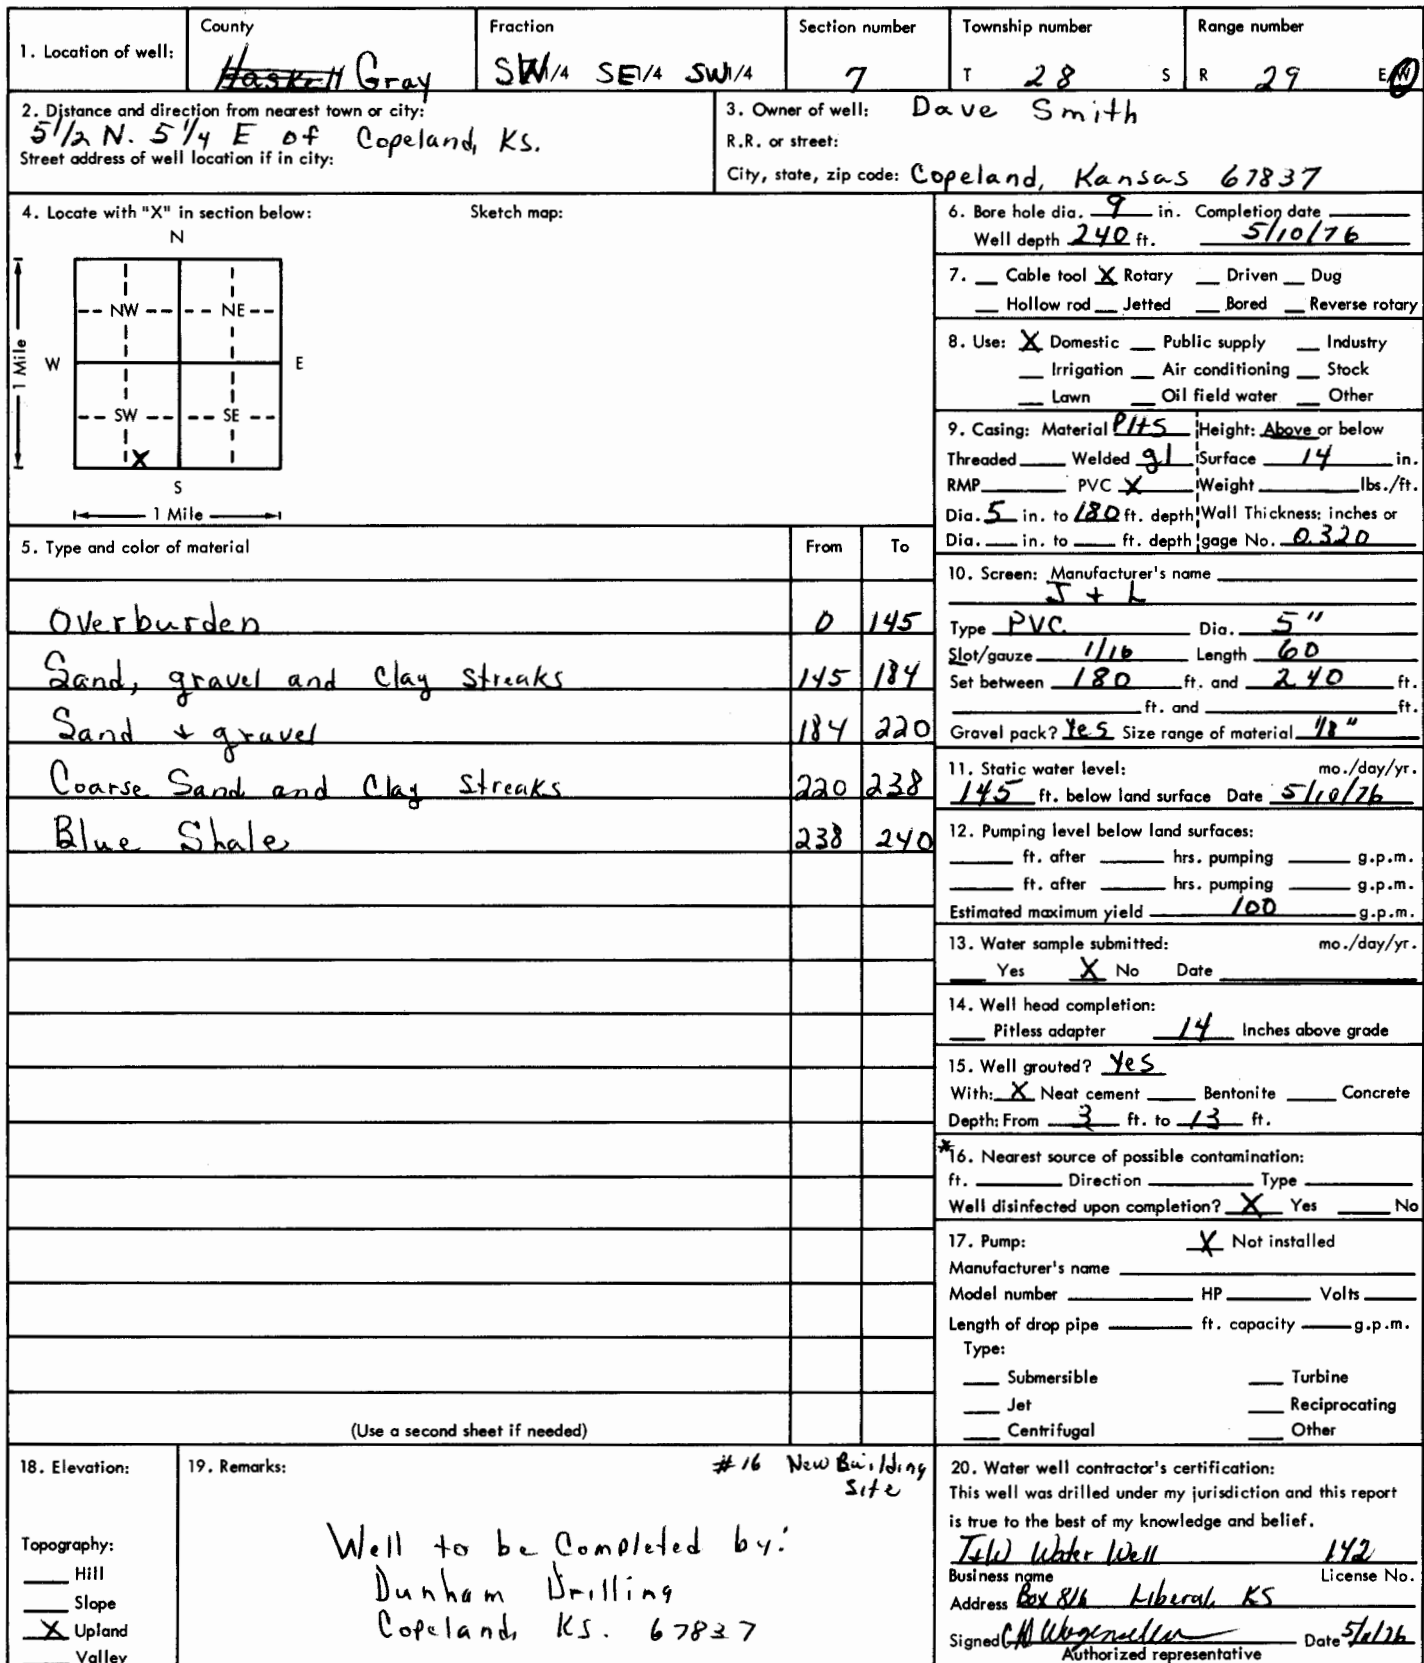 1. Location of well:
County
Haskell Gray
Fraction
SW 1/4 SE 1/4 SW 1/4
Section number
7
Township number
T 28 S
Range number
R 29 E W
2. Distance and direction from nearest town or city:
5 1/2 N. 5 1/4 E of Copeland, KS.
Street address of well location if in city:
3. Owner of well: Dave Smith
R.R. or street:
City, state, zip code: Copeland, Kansas 67837
4. Locate with "X" in section below:
Sketch map:
N
NW NE
W E
1 Mile
SW SE
X
S
1 Mile
5. Type and color of material From To
Overburden 0 145
Sand, gravel and clay streaks 145 184
Sand + gravel 184 220
Coarse Sand and Clay streaks 220 238
Blue Shale 238 240
(Use a second sheet if needed)
6. Bore hole dia. 9 in. Completion date
Well depth 240 ft. 5/10/76
7. Cable tool X Rotary Driven Dug
Hollow rod Jetted Bored Reverse rotary
8. Use: X Domestic Public supply Industry
Irrigation Air conditioning Stock
Lawn Oil field water Other
9. Casing: Material Height: Above or below
Threaded Welded gl Surface 14 in.
RMP PVC X Weight lbs./ft.
Dia. 5 in. to 180 ft. depth Wall Thickness: inches or
Dia. in. to ft. depth gage No. 0.320
10. Screen: Manufacturer's name
J + L
Type PVC Dia. 5"
Slot/gauze 1/16 Length 60
Set between 180 ft. and 240 ft.
ft. and ft.
Gravel pack? Yes Size range of material 1/8"
11. Static water level: mo./day/yr.
145 ft. below land surface Date 5/10/76
12. Pumping level below land surfaces:
ft. after hrs. pumping g.p.m.
ft. after hrs. pumping g.p.m.
Estimated maximum yield 100 g.p.m.
13. Water sample submitted: mo./day/yr.
Yes X No Date
14. Well head completion:
Pitless adapter 14 Inches above grade
15. Well grouted? Yes
With: X Neat cement Bentonite Concrete
Depth: From 3 ft. to 13 ft.
*16. Nearest source of possible contamination:
ft. Direction Type
Well disinfected upon completion? X Yes No
17. Pump: X Not installed
Manufacturer's name
Model number HP Volts
Length of drop pipe ft. capacity g.p.m.
Type:
Submersible Turbine
Jet Reciprocating
Centrifugal Other
18. Elevation:
Topography:
Hill
Slope
X Upland
Valley
19. Remarks:
#16 New Building
Site
Well to be Completed by:
Dunham Drilling
Copeland, KS. 67837
20. Water well contractor's certification:
This well was drilled under my jurisdiction and this report
is true to the best of my knowledge and belief.
T+W Water Well 142
Business name License No.
Address Box 816 Liberal, KS
Signed Date
Authorized representative